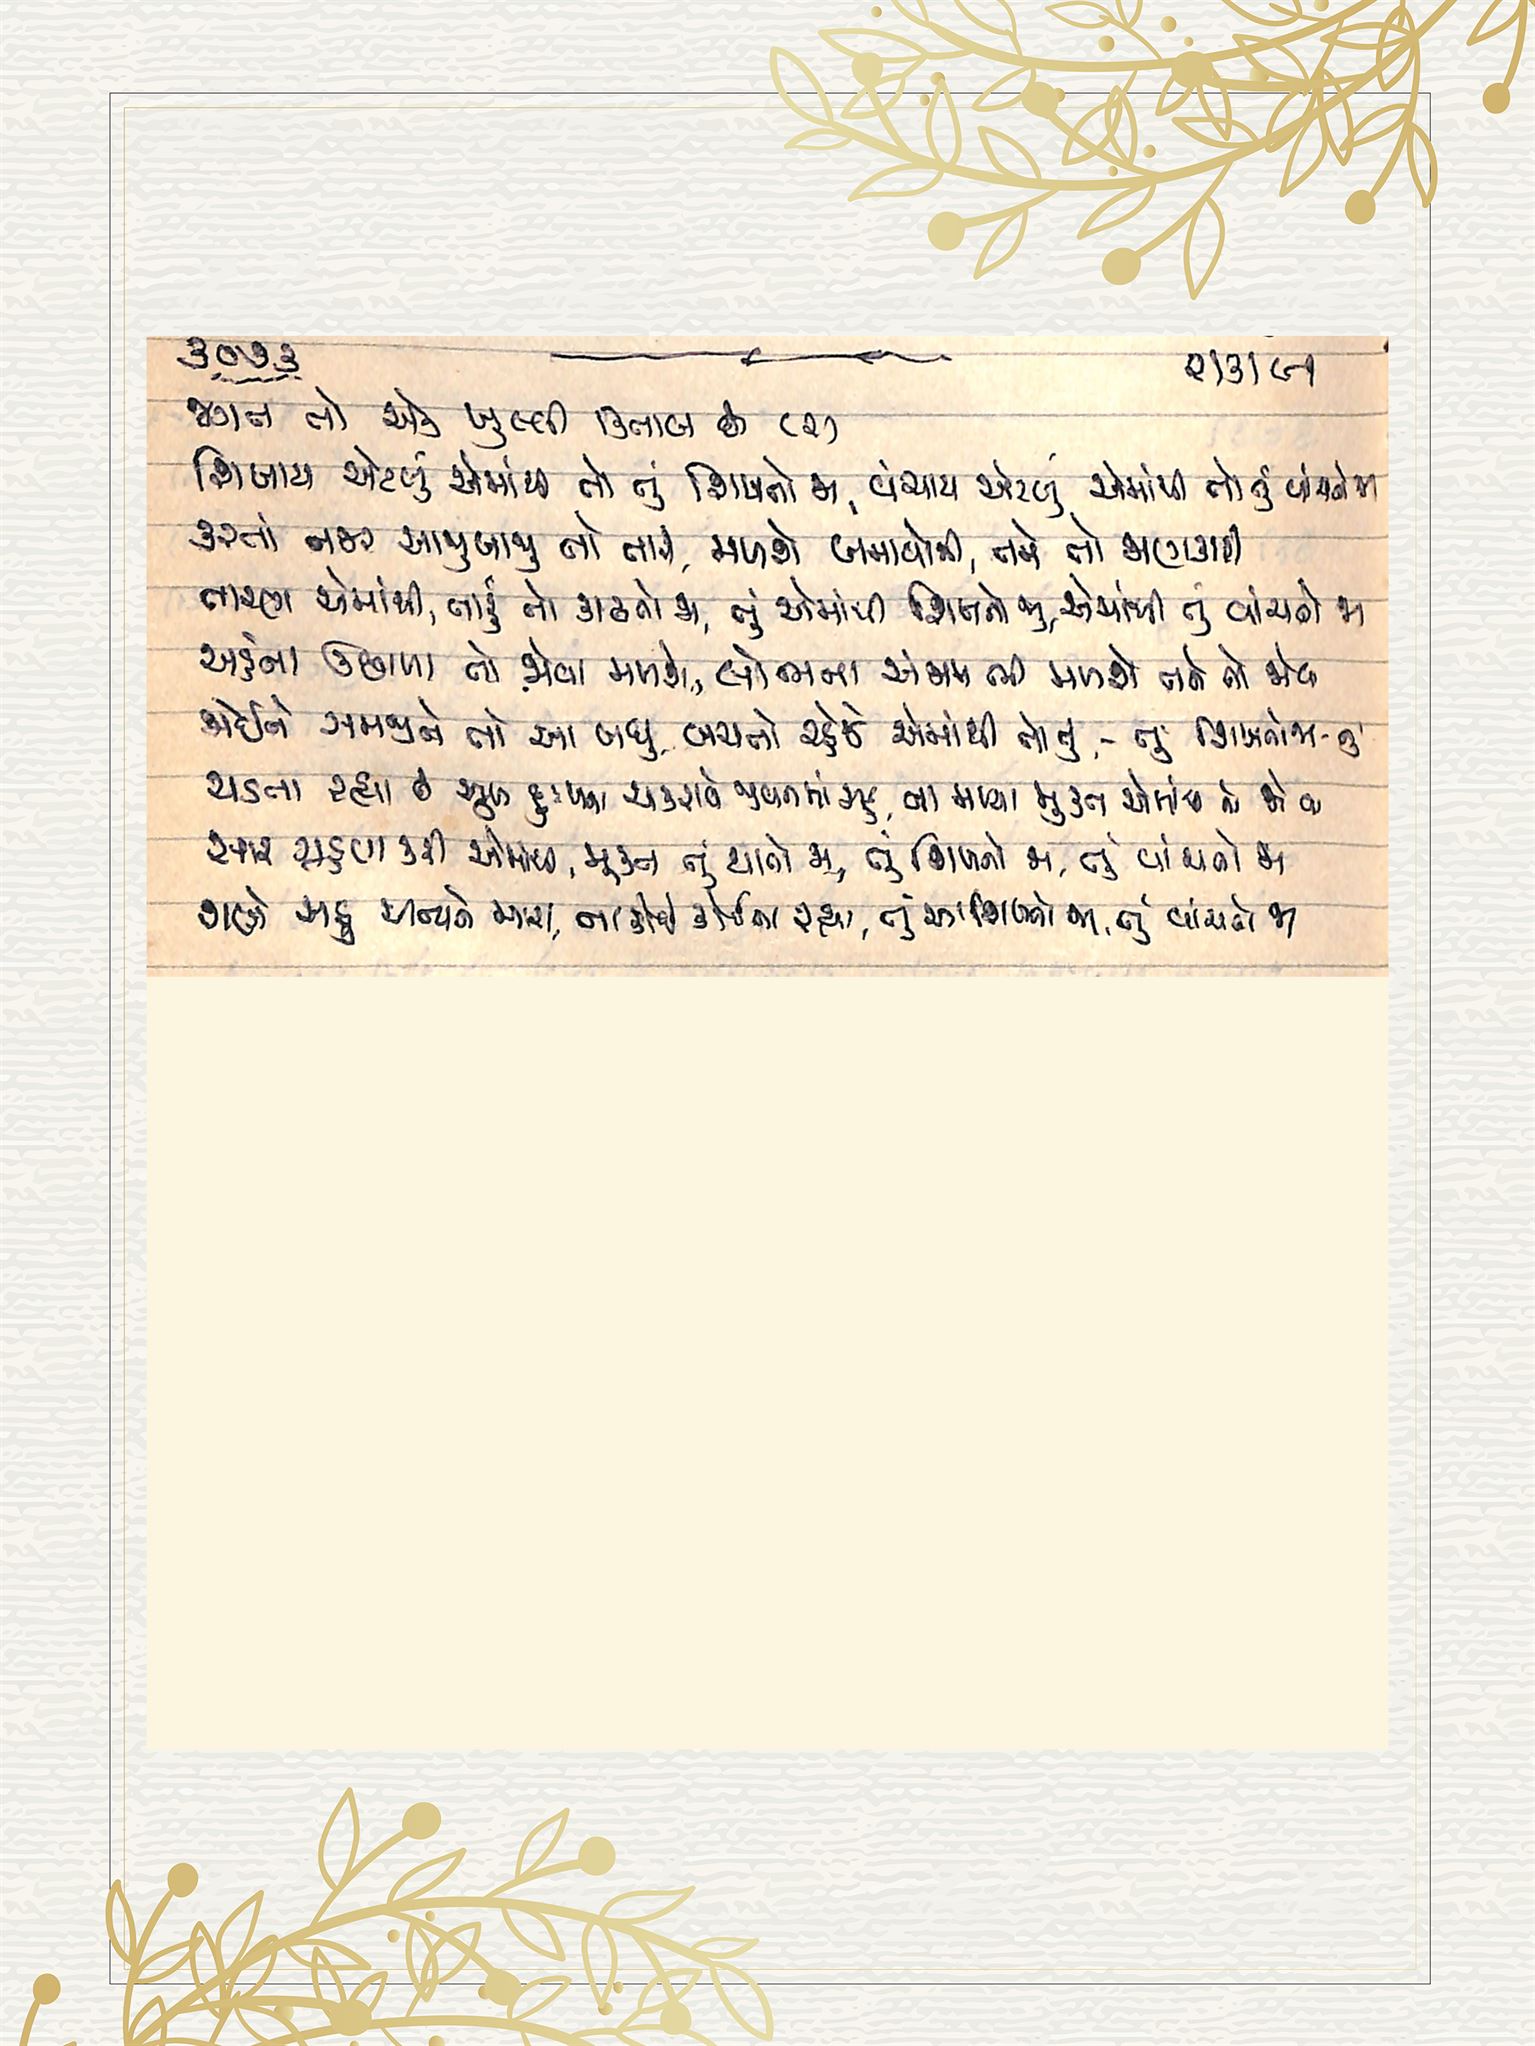 ૩૦૭૩
૨/૩/૯૧
જગત તો એક ખુલ્લી કિતાબ છે (૨)
શિખાય એટલું એમાંથી તો તું શિખતો જા, વંચાય એટલું એમાંથી તો તું વાંચતો જા
કરતાં નજર આજુબાજુ તો તારી, મળશે બનાવોની, તને તો જાણકારી
તારણ એમાંથી, તારું તો કાઢતો જા, તું એમાંથી શિખતો જા, એમાંથી તું વાંચતો જા
અહંના ઉછાળા તો જોવા મળશે, લોભના અંજામ ભી મળશે તને તો જોવા
જોઈને સમજીને તો આ બધું, બચતો રહેજે એમાંથી તો તું - તું શિખતો જા - તું
ચડતા રહ્યા છે સુખ દુઃખના ચકરાવે જીવનમાં સહુ, ના મળ્યા મુક્ત એમાંથી કોઈ જોવા
કરી એમાંથી, મુક્ત તું થાતો જા, તું શિખતો જા, તું વાંચતો જા
ગણજે સહુ અન્યને મારા, ના કોઈ કોઈના રહ્યા, તું આ શિખતો જા, તું વાંચતો જા